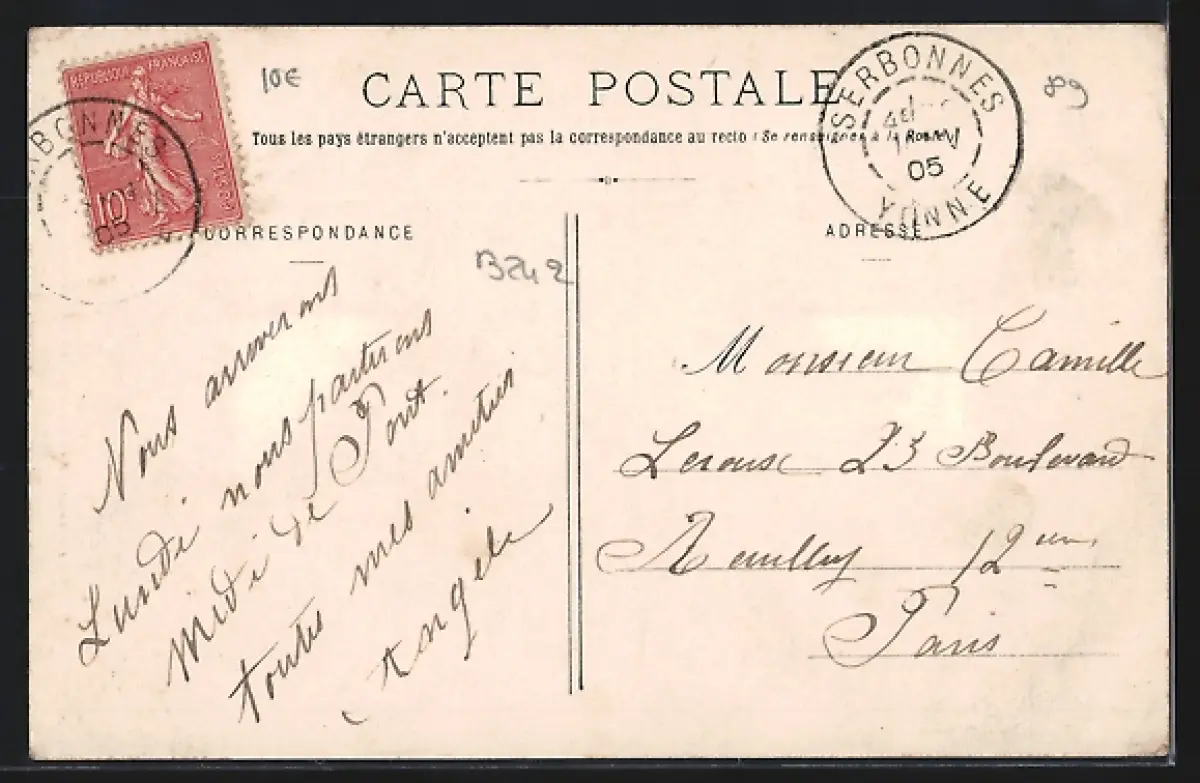 REPUBLIQUE FRANÇAISE
POSTES
10c
10€
CARTE POSTALE
Tous les pays étrangers n'acceptent pas la correspondance au recto (Se renseigner à la Poste)
SERBONNES
05
YONNE
89
CORRESPONDANCE
ADRESSE
B242
Nous arriverons
Lundi nous partirons
midi de Pont.
toutes mes amitiés
Angèle
Monsieur Camille
Leroux 23 Boulevard
Reuilly 12eme
Paris